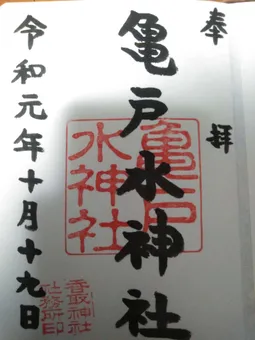 奉拝
亀戸水神社
令和元年十月十九日
亀戸
水神社
香取神社
社務所印